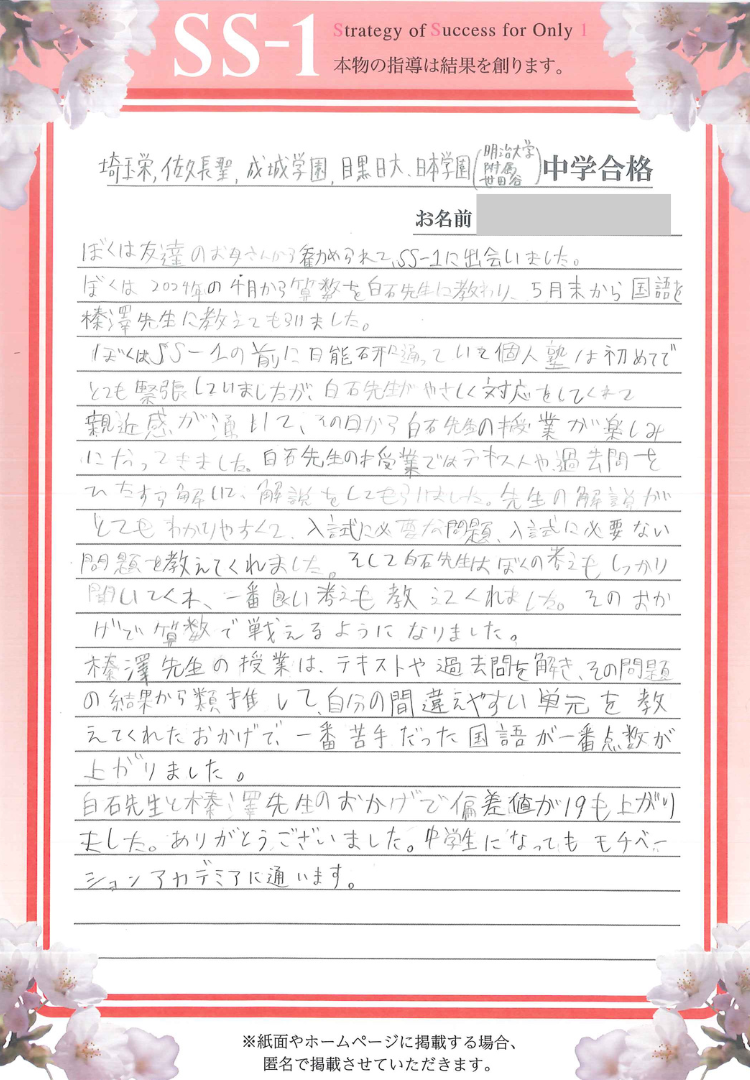 SS-1
Strategy of Success for Only 1
本物の指導は結果を創ります。
埼玉栄,佐久長聖,成城学園,目黒日大、日本学園(明治大学附属世田谷)中学合格
お名前
ぼくは友達のお母さんから勧められて、SS-1に出会いました。
ぼくは2024年の4月から算数を白石先生に教わり、5月末から国語を
榛澤先生に教えてもらいました。
ぼくはSS-1の前に日能研に通っていて個人塾は初めてで
とても緊張していましたが、白石先生がやさしく対応をしてくれて
親近感が湧いて、その日から白石先生の授業が楽しみ
になってきました。白石先生の授業ではテキストや過去問を
ひたすら解いて、解説をしてもらいました。先生の解説が
とてもわかりやすくて、入試に必要な問題、入試に必要ない
問題を教えてくれました。そして白石先生はぼくの考えも、しっかり
聞いてくれ、一番良い考えも教えてくれました。そのおか
げで算数で戦えるようになりました。
榛澤先生の授業は、テキストや過去問を解き、その問題
の結果から類推して、自分の間違えやすい単元を教
えてくれたおかげで、一番苦手だった国語が一番点数が
上がりました。
白石先生と榛澤先生のおかげで偏差値が19も上がり
ました。ありがとうございました。中学生になってもモチベー
ションアカデミアに通います。
※紙面やホームページに掲載する場合、
匿名で掲載させていただきます。